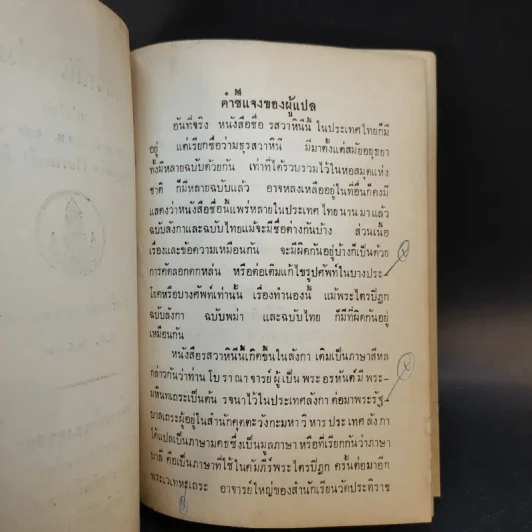 คำชี้แจงของผู้แปล
อันที่จริง หนังสือชื่อ รสวาหินีนี้ ในประเทศไทยก็มี
อยู่ แต่เรียกชื่อว่ามธุรสวาหินี มีมาตั้งแต่สมัยอยุธยา
ทั้งมีหลายฉบับด้วยกัน เท่าที่ได้รวบรวมไว้ในหอสมุดแห่ง
ชาติ ก็มีหลายฉบับแล้ว อาจหลงเหลืออยู่ในที่อื่นก็คงมี
แสดงว่าหนังสือชื่อนี้แพร่หลายในประเทศไทยนานมาแล้ว
ฉบับลังกาและฉบับไทยแม้จะมีชื่อต่างกันบ้าง ส่วนเนื้อ
เรื่องและข้อความเหมือนกัน จะมีผิดกันอยู่บ้างก็เป็นด้วย
การคัดลอกตกหล่น หรือต่อเติมแก้ไขรูปศัพท์ในบางประ-
โยคหรือบางศัพท์เท่านั้น เรื่องทำนองนี้ แม้พระไตรปิฎก
ฉบับลังกา ฉบับพม่า และฉบับไทย ก็มีที่ผิดกันอยู่
เหมือนกัน
หนังสือรสวาหินีนี้เกิดขึ้นในลังกา เดิมเป็นภาษาสีหล
กล่าวกันว่าท่านโบราณาจารย์ผู้เป็นพระอรหันต์มีพระ-
มหินทเถระเป็นต้น รจนาไว้ในประเทศลังกา ต่อมาพระรัฐ-
บาลเถระผู้อยู่ในสำนักคุตตะวังกะมหาวิหารประเทศลังกา
ได้แปลเป็นภาษามคธซึ่งเป็นมูลภาษา หรือที่เรียกกันว่าภาษา
บาลี คือเป็นภาษาที่ใช้ในคัมภีร์พระไตรปิฎก ครั้นต่อมาอีก
พระเวเทหะเถระ อาจารย์ใหญ่ของสำนักเรียนวัดประติราช